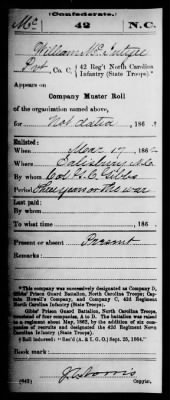 (Confederate.)
Mc 42 N.C.
William McIntyre
Pvt, Co. C, 42 Reg't North Carolina
Infantry (State Troops).*
Appears on
Company Muster Roll
of the organization named above,
for Not dated, 186
Enlisted:
When Mar 17, 186
Where Salisbury N.C.
By whom Col. G. C. Gibbs
Period three years or the war
Last paid:
By whom
To what time , 186
Present or absent Present
Remarks:
*This company was successively designated as Company D,
Gibbs' Prison Guard Battalion, North Carolina Troops; Captain
Howell's Company, and Company C, 42d Regiment
North Carolina Infantry (State Troops).
Gibbs' Prison Guard Battalion, North Carolina Troops,
consisted of four companies, A to D. The battalion was raised
to a regiment about May, 1862, by the addition of six companies
of recruits and designated the 42d Regiment North
Carolina Infantry (State Troops).
Roll indorsed: "Rec'd (A. & I. G. O.) Sept. 25, 1864."
Book mark:
(642)
Copyist.